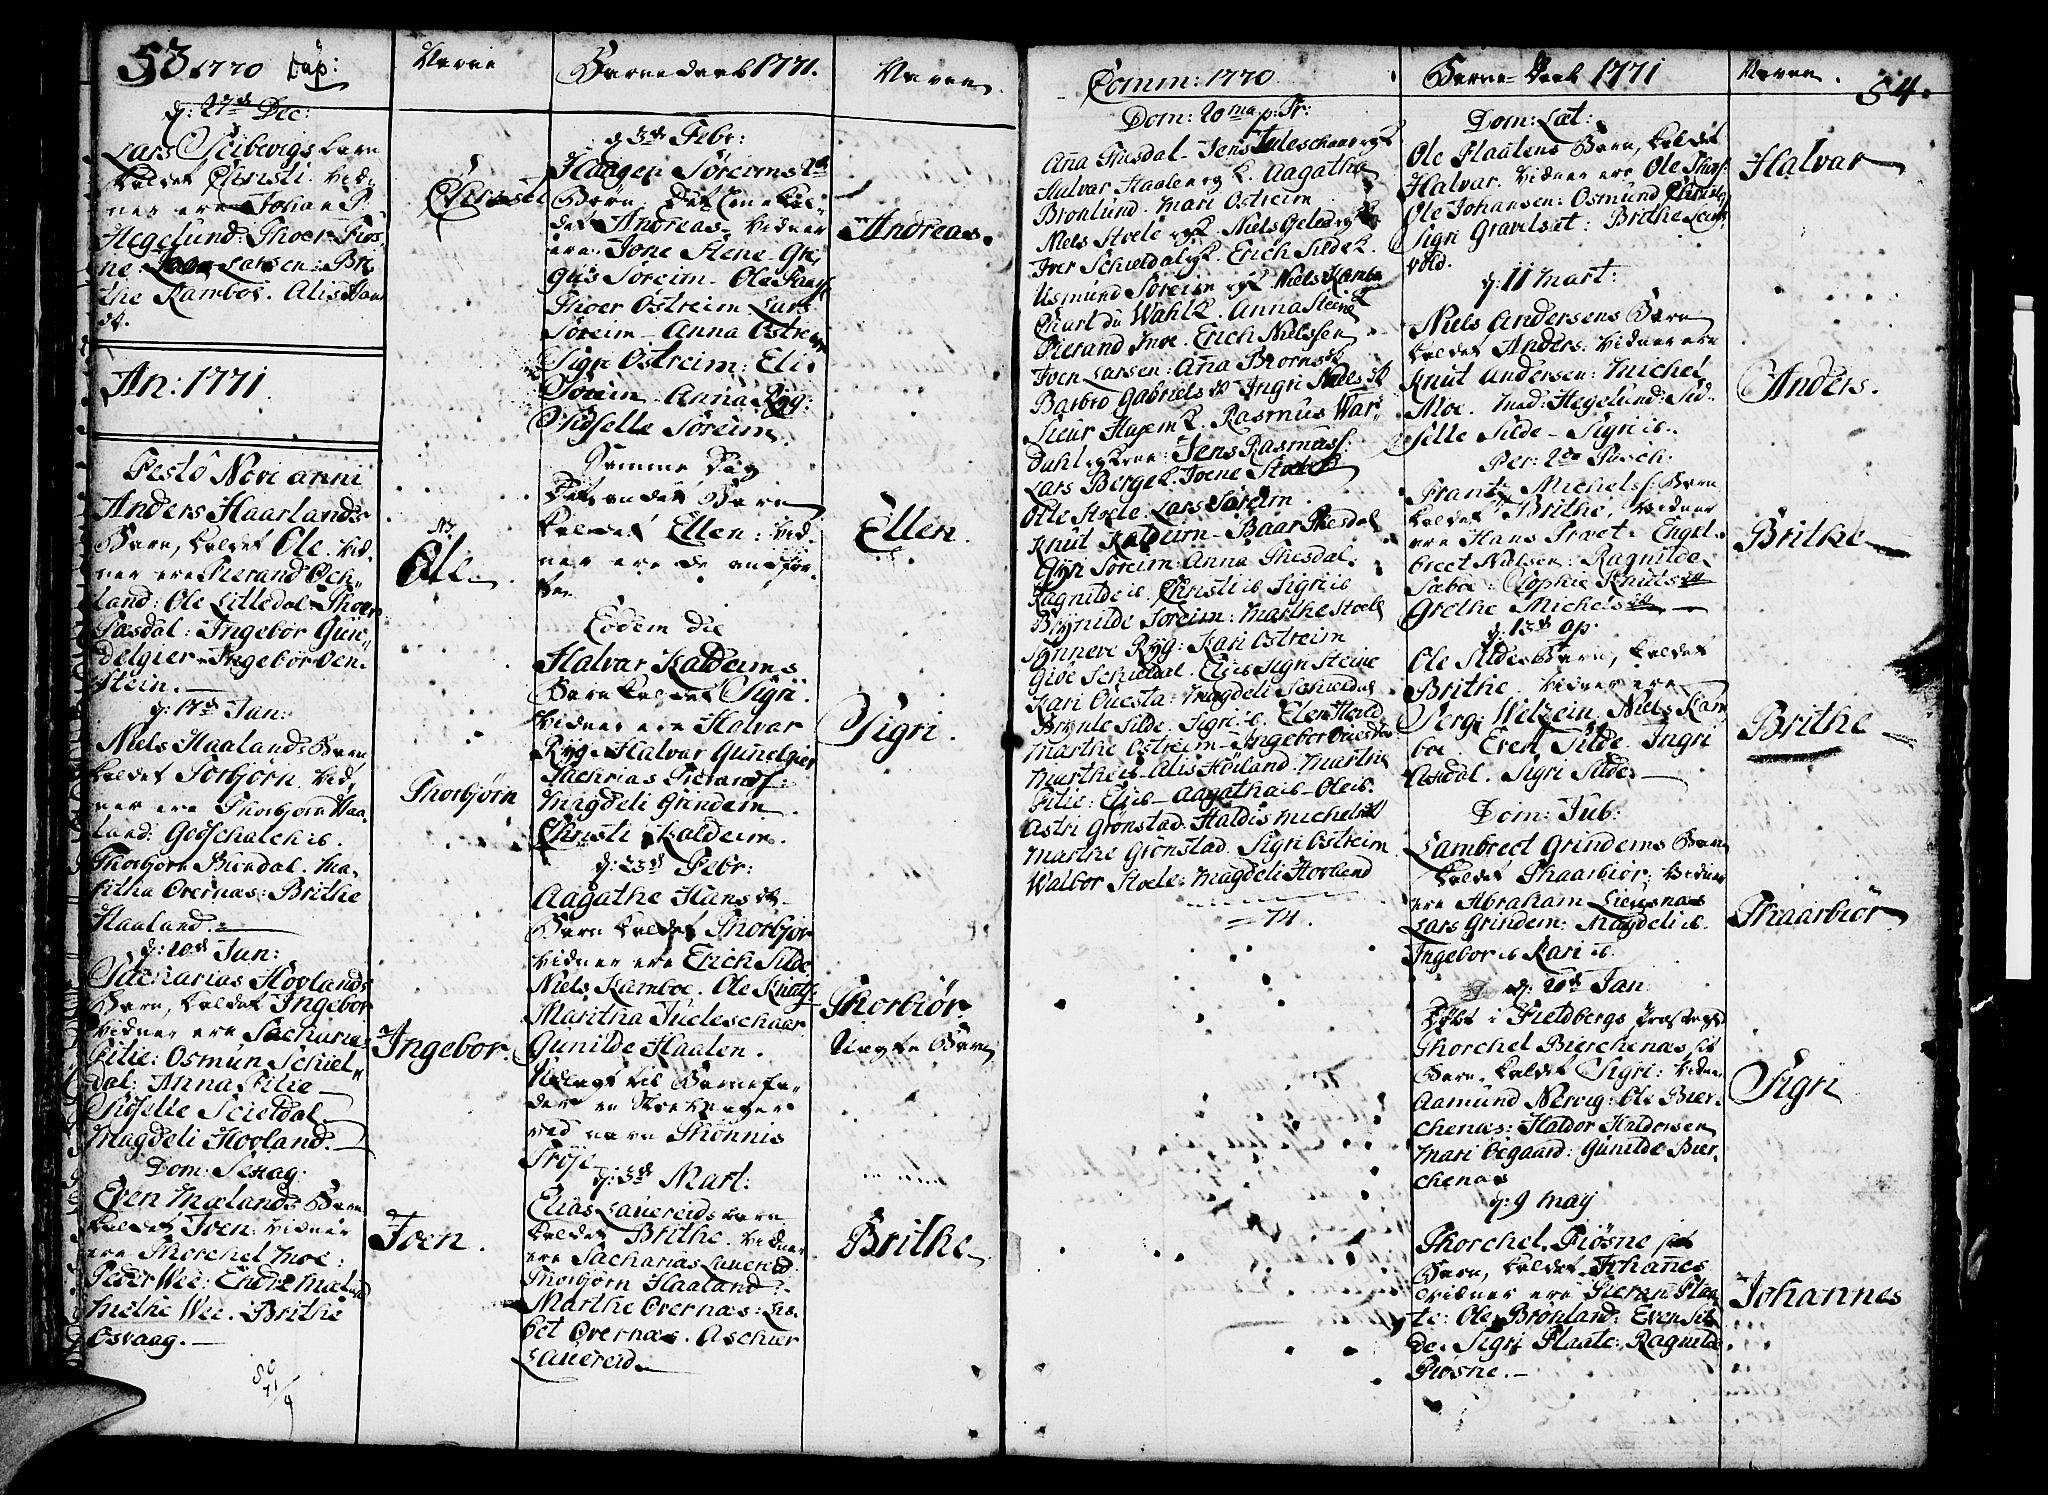 53. 1770 Dåp:
d: 27de Dec:
Lars Leibevigs barn
kaldet Christi. Vid-
ner ere Johan P.
Hegelund: Thoer Fiøs-
ne. Lars Larsen: Bri-
the Ramboe. Alis
An: 1771
Festo Novi anni
Anders Haarlands
Barn, kaldet Ole. Vid-
ner ere Pierand Øch-
land: Ole Lilledal: Thoer
Pæsdal: Ingebor Gun-
delgier. Ingebor Øen-
stein.
d: 17de Jan:
Niels Haalands Barn
kaldet Torbjørn. Vid-
ner ere Thorbjørn Haa-
land: Godschalch ib.
Thorbjørn Mundal. Ma-
ritha Overnas: Brithe
Haaland.
d: 20de Jan:
Sacharias Hovlands
Barn, kaldet Ingebor
Vidner ere Sacharias
Pilie: Osmun Schiel-
dal: Anna Pilie
Sidselle Schieldal
Magdeli Hovland.
Dom: Sexag:
Even Mælands Barn
kaldet Iven: Vidner
ere Thorchel Moe:
Peder Wee: Endre Mæland
Methe Wee. Brithe
Osvaag.
80
71/9
Navne
Christi
No
Ole
Thorbjørn
Ingebor.
Iven.
Barnedaab 1771.
d 3de Febr:
Haagen Søreims 2de
Børn. Det Ene kal-
det Andreas. Vidner
ere. Jone Stene. Gre-
gus Søreim. Ole
Thoer Ostreim Lars
Søreim. Anna Ostreim
Sigri Ostreim: Eli
Søreim. Anna Ryg:
Sidselle Søreim.
Samme Dag
Det andet Barn
kaldet Ellen: Vid-
ner ere de anfør-
te.
Eodem die
Halvar Kaldeims
Barn kaldet Sigri.
Vidner ere Halvar
Ryg. Halvar Gundelgier
Sachrias Pierands:
Magdeli Grindem
Christi Kaldeim.
d: 23de Febr:
Aagathe Hansdt
Barn kaldet Thorbjør
Vidner ere Erich Silde
Niels Kamboe. Ole Knuts:
Maritha Tueleschaar
Gunilde Haalen.
Udlagt til Barnefa-
der en
ved navn Thønnis
Troje
d: 3de Mart:
Elias Lauereids barn
kaldet Brithe. Vidner
ere Sacharias Lauereid.
Thorbjørn Haaland:
Marthe Overnæs: Lis-
bet Øvernæs. Aschier
Lauereid.
Navne
Andreas.
Ellen.
Sigri.
Thorbiør.
Uægte Barn
Brithe
Comm: 1770
Dom: 20ma p: Tr:
Anna Thesdal. Jens Tuleschaar og K
Halvar Haale og K. Aagatha
Bronlund. Mari Ostreim
Niels Stoele og K. Niels
Iver Schieldal og K. Erich Silde K.
Usmund Søreim og K. Niels Kambo
Charl du Wahl K. Anna Steene
Pierand Moe. Erich Nielssen
Iven Larsen: Ana Biornsdt
Barbro Gabrielsdt Ingri Nielsdt
Sieur Hagem K. Rasmus War-
dahl og Kone: Jens Rasmuss:
Lars Berge K. Joene Stoele
Olle Stoele. Lars Søreim.
Knut Kaldeim. Baar Thesdal
Gyri Søreim: Anna Thesdal.
Ragnilde ib. Christi ib Sigri ib
Brynilde Søreim: Marthe Stoele
Synneve Ryg: Kari Ostreim
Give Schieldal. Eli ib Sigri Steine
Kari Ouesta: Magdeli Schieldal
Brynle Silde. Sigri ib. Elen
Marthe Ostreim. Ingebor
Marthe ib. Alis Hovland. Marthe
Pilie: Eli ib. Aagatha ib. Ole ib.
Astri Grönstad. Haldis Michelsdt
Marthe Grönstad. Sigri Ostreim
Walbor Stoele. Magdeli Hovland
74.
Barne-Daab 1771
Dom: Læt:
Ole Flaatens Barn, kaldet
Halvar. Vidner ere Ole
Ole Johansen: Osmund
Sigri Gravelset: Brithe
vold.
d: 11 Mart:
Niels Andersens Barn
kaldet Anders. Vidner ere
Knut Andersen: Michel
Moe. Mad: Hegelund: Sid-
selle Silde. Sigri ib.
Fer: 2da Pasch:
Frantz Michels: Barn
kaldet Brithe. Vidner
ere Hans Troet: Engel-
bret Nielsen: Ragnilde
Sæboe: Sophie Knutsdt
Grethe Michelsdt
d: 13de ap:
Ole Sildes Barn, kaldet
Brithe. Vidner ere
Serg: Welzein. Niels Kam-
boe. Even Silde. Ingri
Asdal. Sigri Silde
Dom: Jub:
Lambrect Grindems Barn
kaldet Thaarbiør: Vidner
ere Abraham Lieusnæs
Lars Grindem: Magdeli ib.
Ingebor ib Kari ib.
d: 20de Jan
Døbt i Fieldbergs
Thorchel Bierchenæs sit
Barn, kaldet Sigri: Vidner
Aamund Nervig: Ole Bier-
chenæs: Haldor Haldorsen
Mari Øegaard: Gunilde Bier-
chenæs
d: 9 May
Thorchel Fiøsne sit
Barn, kaldet Johannes
Vidner ere Pieran Flaa-
te: Ole Brønland: Even Sil-
de. Sigri Flaate: Ragnilde
Fiøsne.
Navne.
54.
Halvar
Anders.
Brithe
Brithe
Thaarbiør
Sigri
Johannes